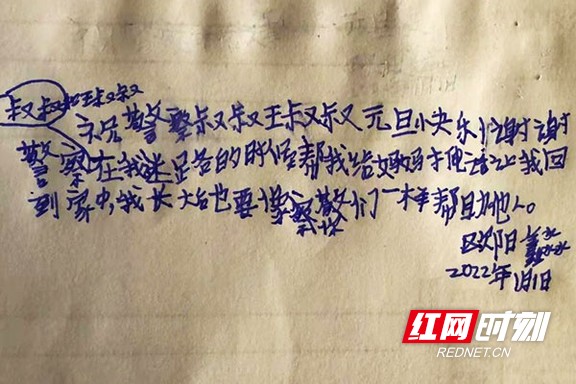 叔叔和王叔叔
祝尼警察叔叔王叔叔元旦快乐谢谢
警察在我迷足各的时候帮我给妈妈打电话让我回
到家中,我长大台也要像警察们一样帮助他人。
区欧阳
2022年1月1日
红网时刻
REDNET.CN